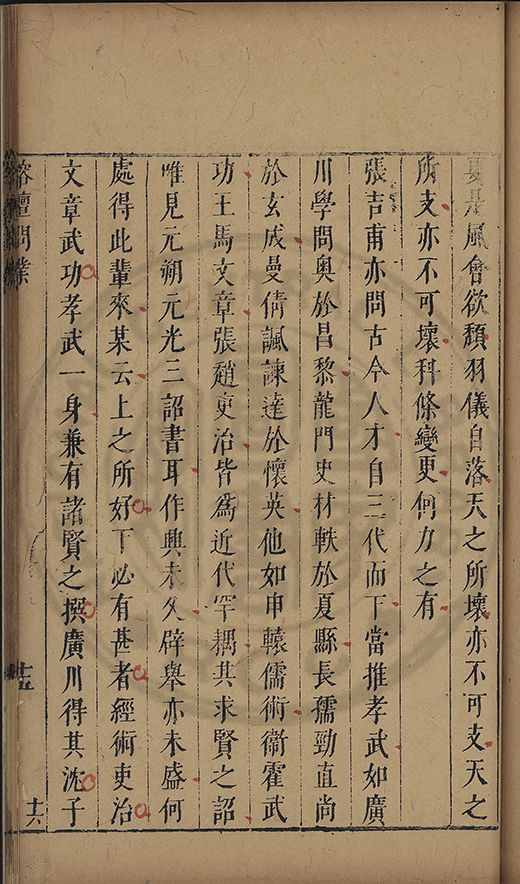 是風會欲頽羽儀自落天之所壞亦不可支天之
所支亦不可壞科條變更何力之有
張吉甫亦問古今人才自三代而下當推孝武如廣
川學問奧於昌黎龍門史材軼於夏縣長孺勁直尚
於玄成曼倩諷諫達於懷英他如申轅儒術衞霍武
功王馬文章張趙吏治皆爲近代罕耦其求賢之詔
唯見元朔元光三詔書耳作興未久辟舉亦未盛何
處得此輩來某云上之所好下必有甚者經術吏治
文章武功孝武一身兼有諸賢之撰廣川得其沈子
榕壇問業
十五
十六